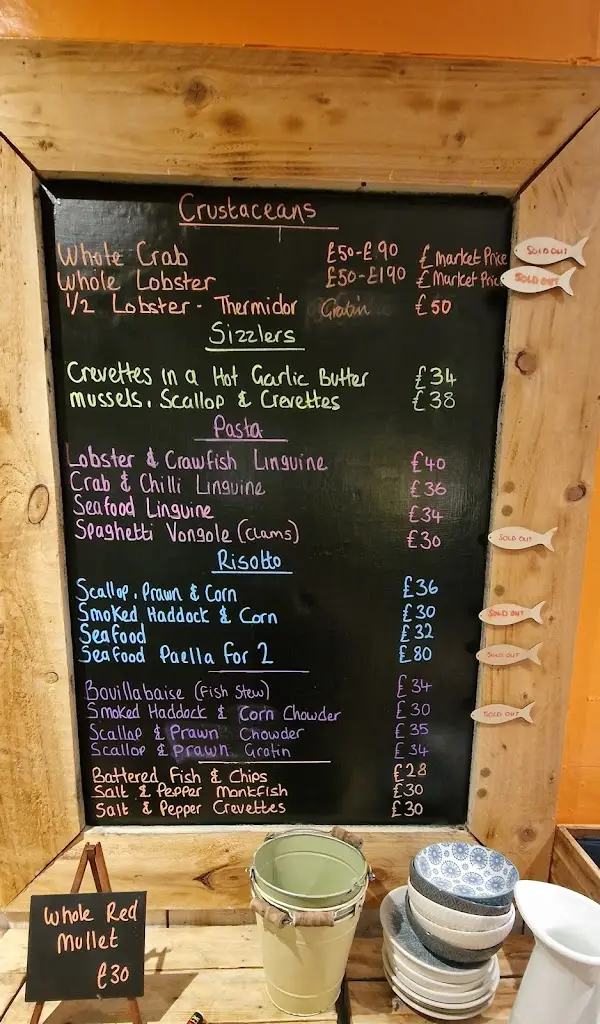 Crustaceans
Whole Crab £50-£90 £market Price SOLD OUT
Whole Lobster £50-£190 £Market Price SOLD OUT
1/2 Lobster - Thermidor Gratin £50
Sizzlers
Crevettes in a Hot Garlic Butter £34
mussels, Scallop & Crevettes £38
Pasta
Lobster & Crawfish Linguine £40
Crab & Chilli Linguine £36
Seafood Linguine £34
Spaghetti Vongole (Clams) £30 SOLD OUT
Risotto
Scallop, Prawn & Corn £36
Smoked Haddock & Corn £30 SOLD OUT
Seafood £32
Seafood Paella for 2 £80 SOLD OUT
Bouillabaise (Fish Stew) £34
Smoked Haddock & Corn Chowder £30 SOLD OUT
Scallop & Prawn Chowder £35
Scallop & Prawn Gratin £34
Battered Fish & Chips £28
Salt & Pepper Monkfish £30
Salt & Pepper Crevettes £30
Whole Red
Mullet
£30